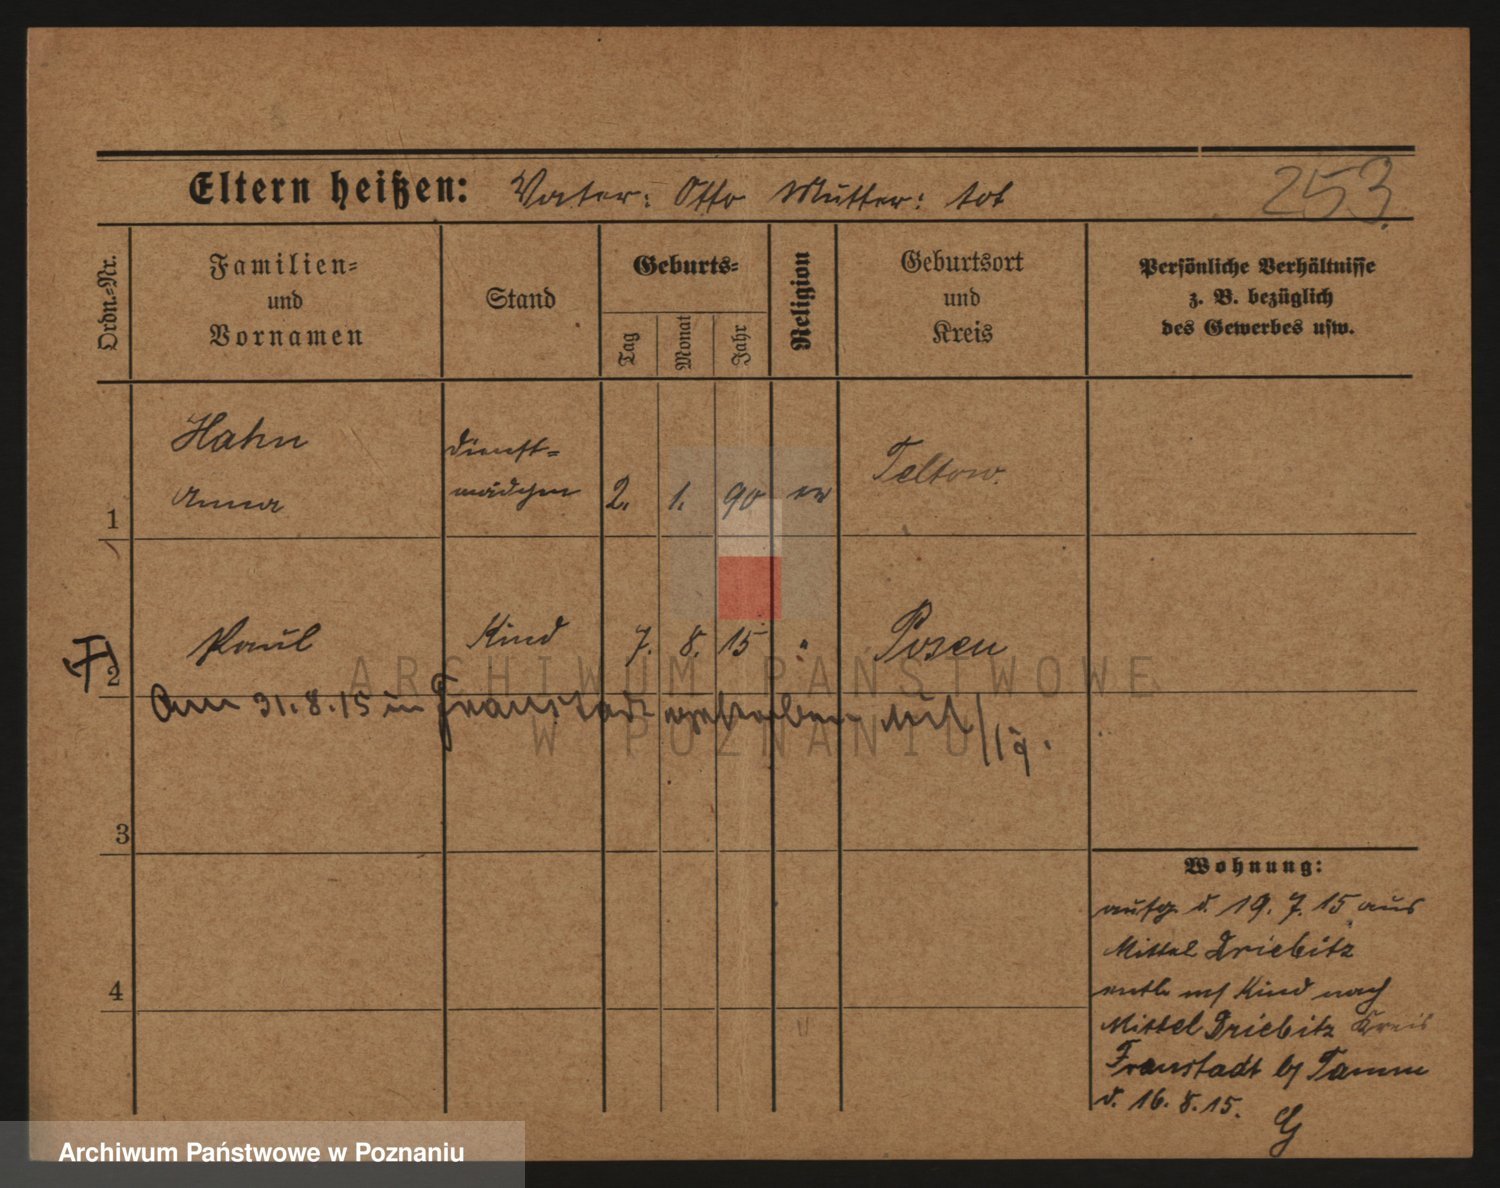 253.
Eltern heißen: Vater: Otto Mutter: tot
Ordn.-Nr.
Familien-
und
Vornamen
Stand
Geburts-
Tag
Monat
Jahr
Religion
Geburtsort
und
Kreis
Persönliche Verhältnisse
z. B. bezüglich
des Gewerbes usw.
Hahn
Anna
Dienst-
mädchen
2. 1. 90 ev
Teltow.
1
Paul Kind 7. 8. 15 " Posen
2
Am 31.8.15 in Fraustadt gestorben
3
4
Wohnung:
aufg. d. 19. 7. 15 aus
Mittel Driebitz
entl. m/ Kind nach
Mittel Driebitz Kreis
Fraustadt b/ Tamm
d. 16. 8. 15.
ARCHIWUM PAŃSTWOWE
W POZNANIU
Archiwum Państwowe w Poznaniu